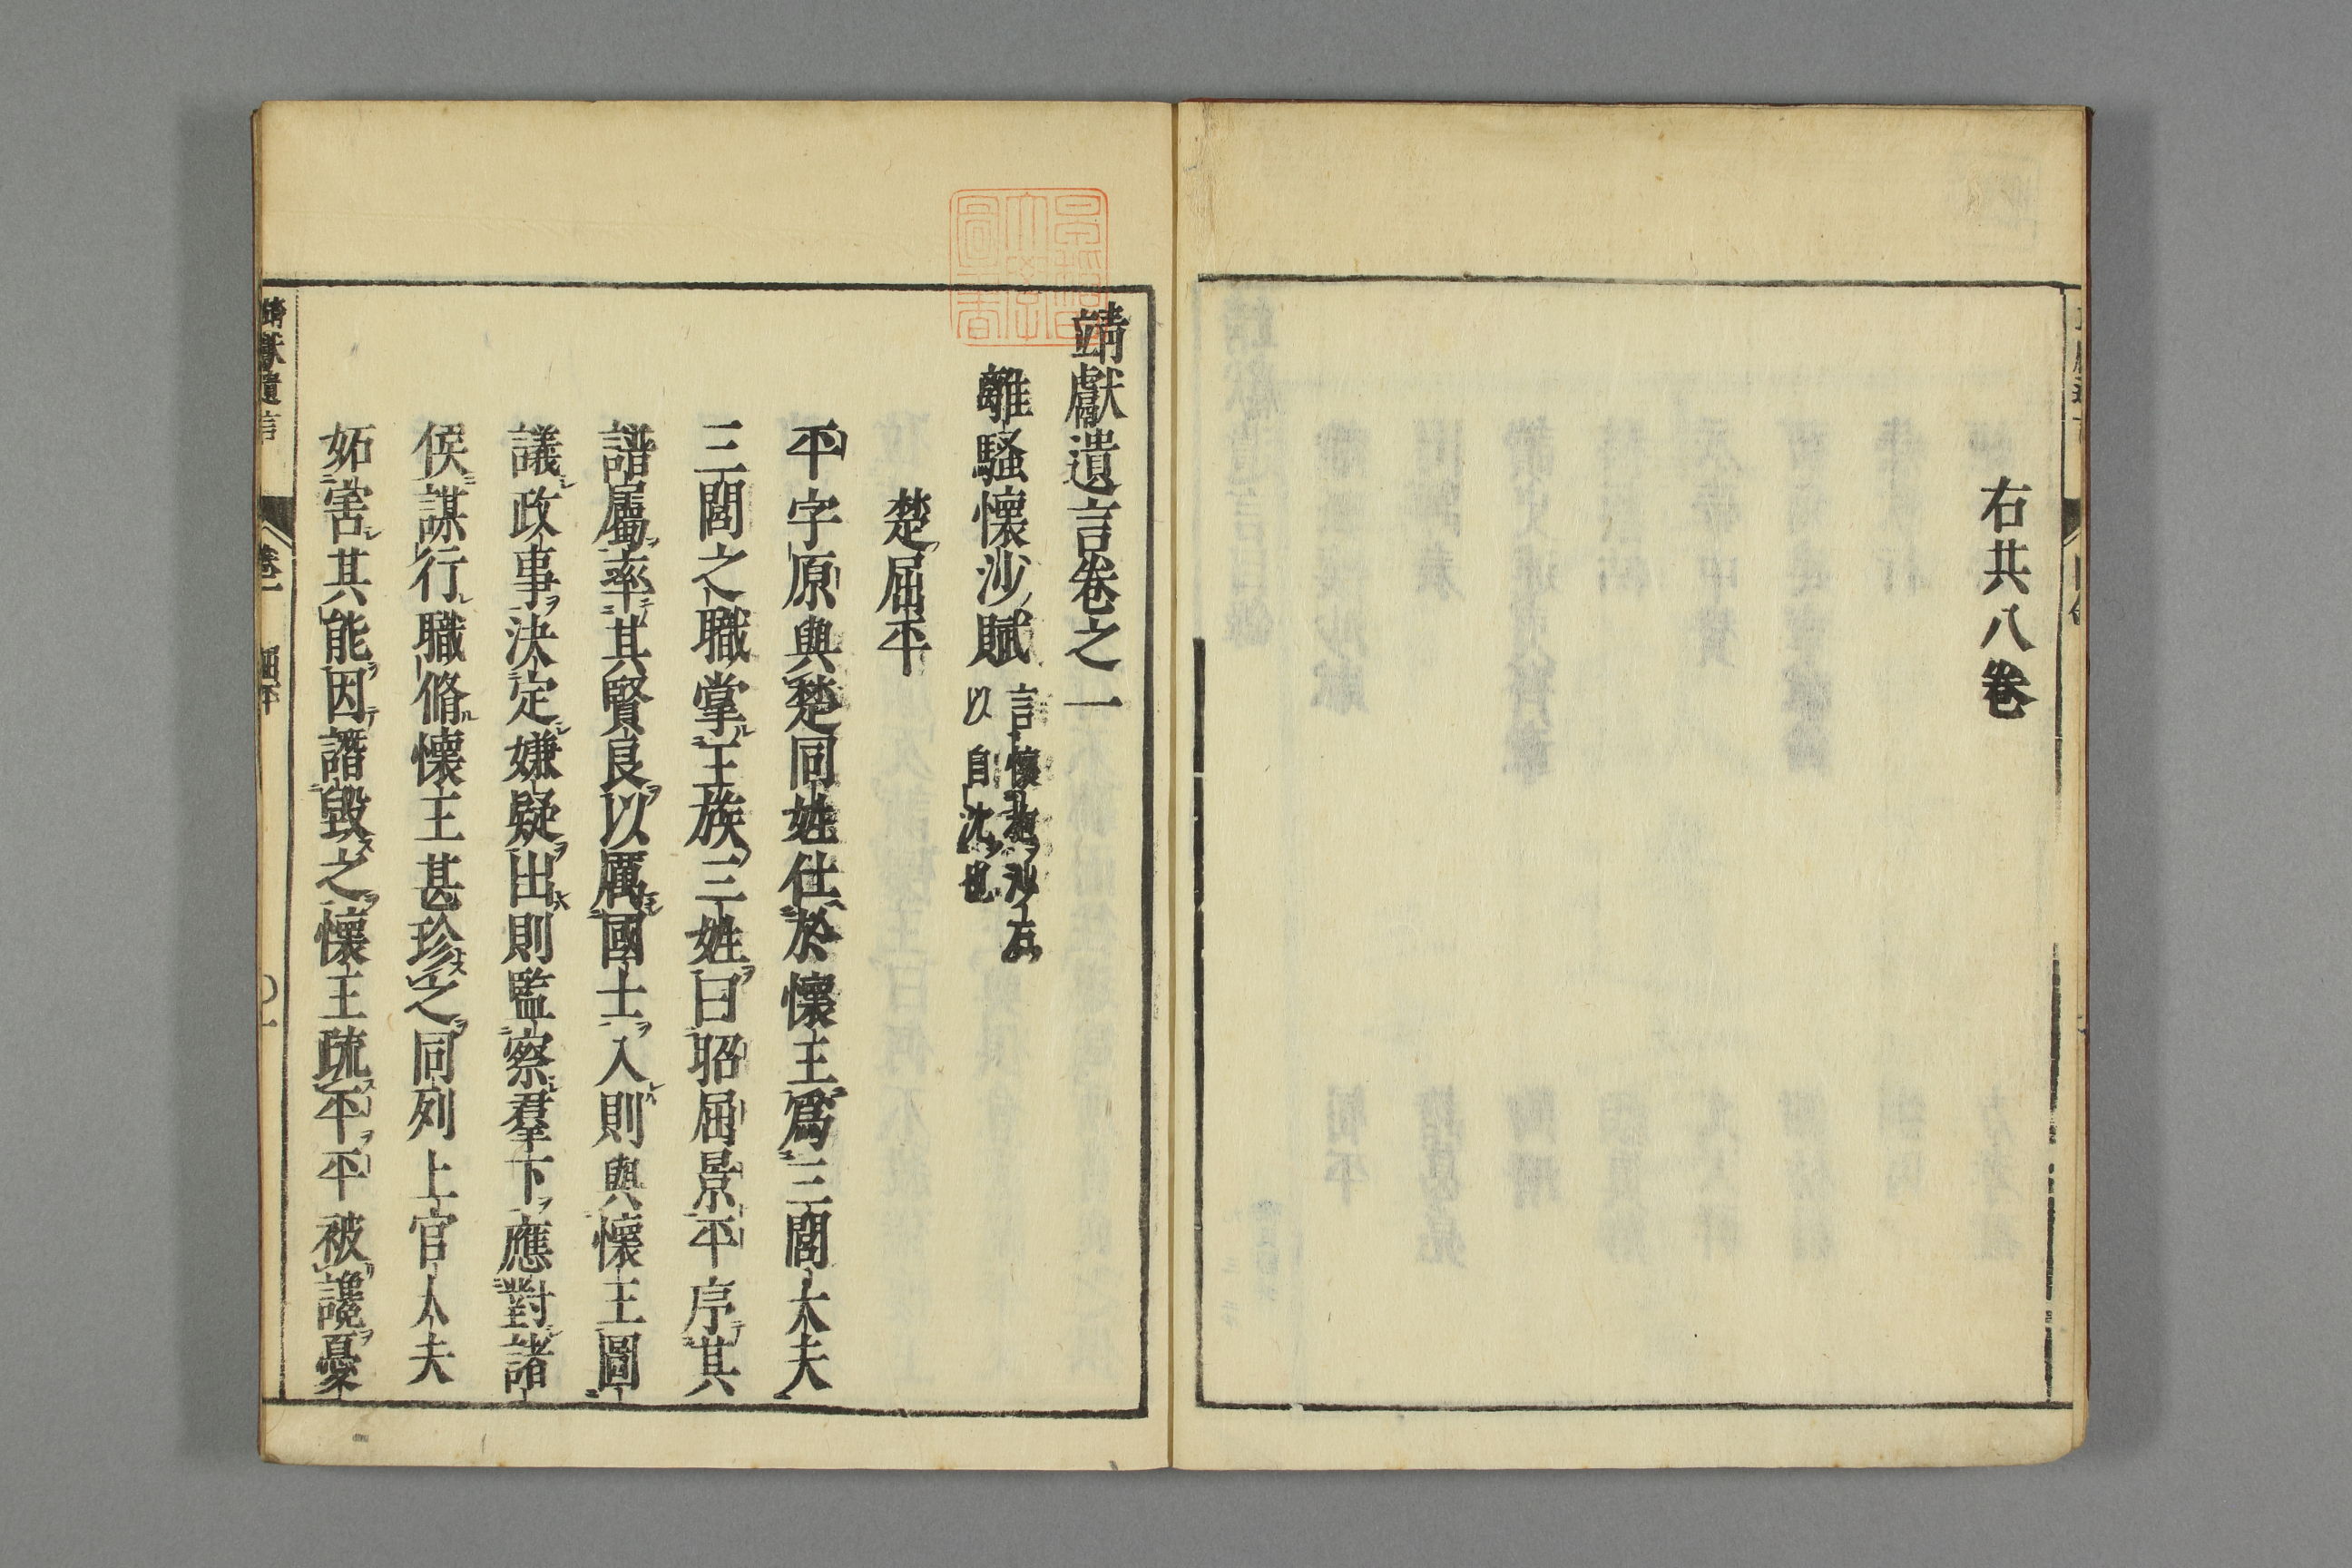 右共八卷
靖獻遺言卷之一
離騷懷沙賦
言懷抱沙石
以自沈也
楚屈平
平字原與楚同姓仕於懷王爲三閭大夫
三閭之職掌王族三姓曰昭屈景平序其
譜屬率其賢良以厲國士入則與懷王圖
議政事決定嫌疑出則監察羣下應對諸
侯謀行職脩懷王甚珍之同列上官大夫
妬害其能因譖毀之懷王疏平平被讒憂
靖獻遺言 卷一 屈平